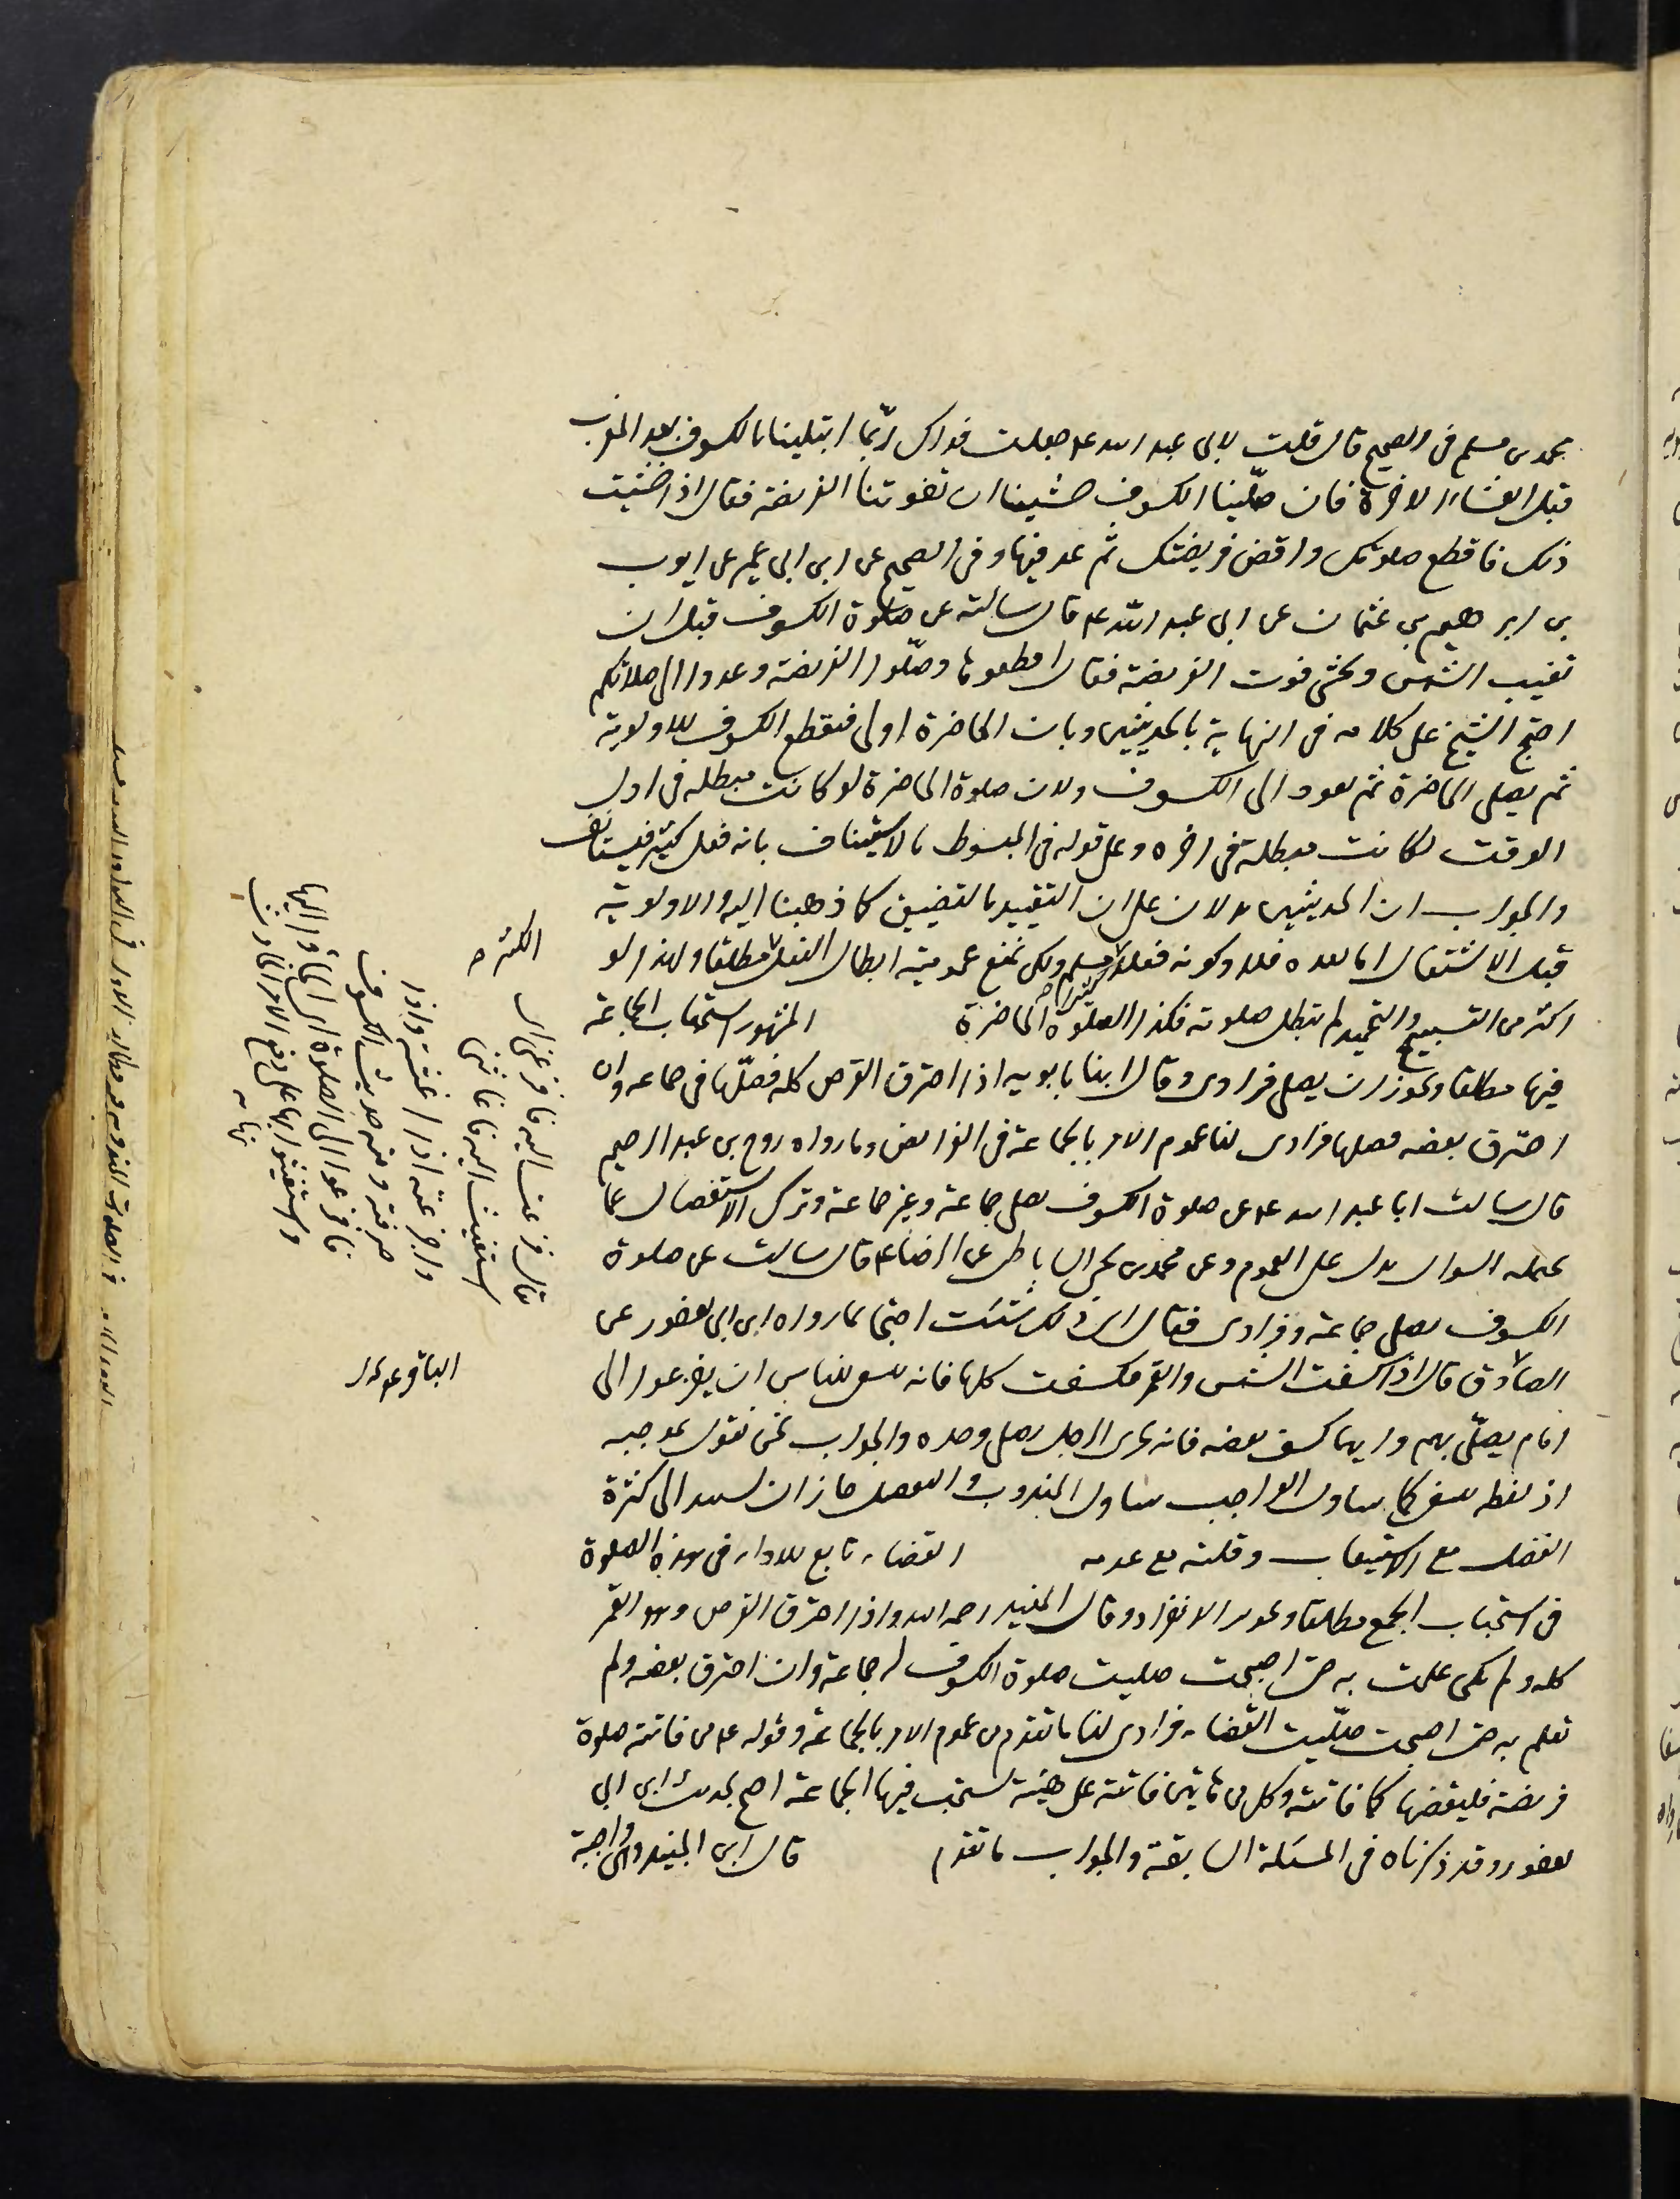 محمد بن مسلم فى الصحيح قال قلت لابى عبد الله ع جعلت فداك ربّما ابتلينا بالكسوف بعد المغرب
قبل العشاء الاخرة فان صلّينا الكسوف خشينا ان تفوتنا الفريضة فقال اذا خشيت
ذلك فاقطع صلوتك واقض فريضتك ثم عد فيها وفى الصحيح عن ابن ابى عمير عن ايوب
بن ابرهيم بن عثمان عن ابى عبد الله ع قال سالته عن صلوة الكسوف قبل ان
تغيب الشمس ونخشى فوت الفريضة فقال اقطعوها وصلّوا الفريضة وعودوا الى صلاتكم
احتج الشيخ على كلامه فى النهاية بالحديثين وبان الحاضرة اولى فيقطع الكسوف للاولوية
ثم يصلى الحاضرة ثم يعود الى الكسوف ولان صلوة الحاضرة لو كانت مبطلة فى اول
الوقت لكانت مبطلة فى اخره وعلى قوله فى المبسوط بالاستيناف بانه فعل كثير فيستانف
والجواب ان الحديثين يدلان على ان التقييد بالتضيق كما ذهبنا اليه والاولوية
قبل الاشتغال اما بعده فلا وكونه فعلا كثيرا مسلم ولكن نمنع عمومية ابطال الفعل مطلقا ولهذا لو
اكثر من التسبيح والتحميد لم تبطل صلوته فكذا الصلوة الحاضرة المشهور استحباب الجماعة
فيها مطلقا ويجوز ان يصلى فرادى وقال ابنا بابويه اذا احترق القرص كله فصلّها فى جماعة وان
احترق بعضه فصلها فرادى لنا عموم الامر بالجماعة فى الفرائض وما رواه روح بن عبد الرحيم
قال سالت ابا عبد الله ع عن صلوة الكسوف يصلى جماعة وغير جماعة وترك الاستفصال عما
يحتمله السوال يدل على العموم وعن محمد بن يحيى الساباطى عن الرضا ع قال سالته عن صلوة
الكسوف يصلى جماعة وفرادى فقال اى ذلك شئت احتجا بما رواه ابن ابى يعفور عن
الصادق قال اذا انكسفت الشمس والقمر فكسفت كلها فانه ينبغى للناس ان يفزعوا الى
امام يصلّى بهم وايهما كسف بعضه فانه يجزى الرجل يصلى وحده والجواب نحن نقول بموجبه
اذ لفظة ينبغى كما يتناول الواجب يتناول المندوب والتفصيل جاز ان يستند الى كثرة
الفضل مع الاستيعاب وقلته مع عدمه القضاء تابع للاداء فى هذه الصلوة
فى استحباب الجمع مطلقا ويجوز الانفراد وقال المفيد رحمه الله واذا احترق القرص وهو القمر
كله ولم تكن علمت به حتى اصبحت صليت صلوة الكسوف له جماعة وان احترق بعضه ولم
تعلم به حتى اصبحت صلّيت القضاء فرادى لنا ما تقدم من عموم الامر بالجماعة وقوله ع من فاتته صلوة
فريضة فليقضها كما فاتته وكل من فاتته على هيئة تستحب فيها الجماعة احتج بحديث ابن ابى
يعفور وقد ذكرناه فى المسئلة السابقة والجواب ما تقدم قال ابن الجنيد وهى واجبة
يقال فزعت اليه فافزعنى اى
استغثت اليه فاغاثنى
وافزعته اذا اغثته واذا
خوفته ومنه حديث الكسوف
فافزعوا الى الصلوة اى الجاؤا اليها
واستغيثوا بها على دفع الامر الحادث
نهاية